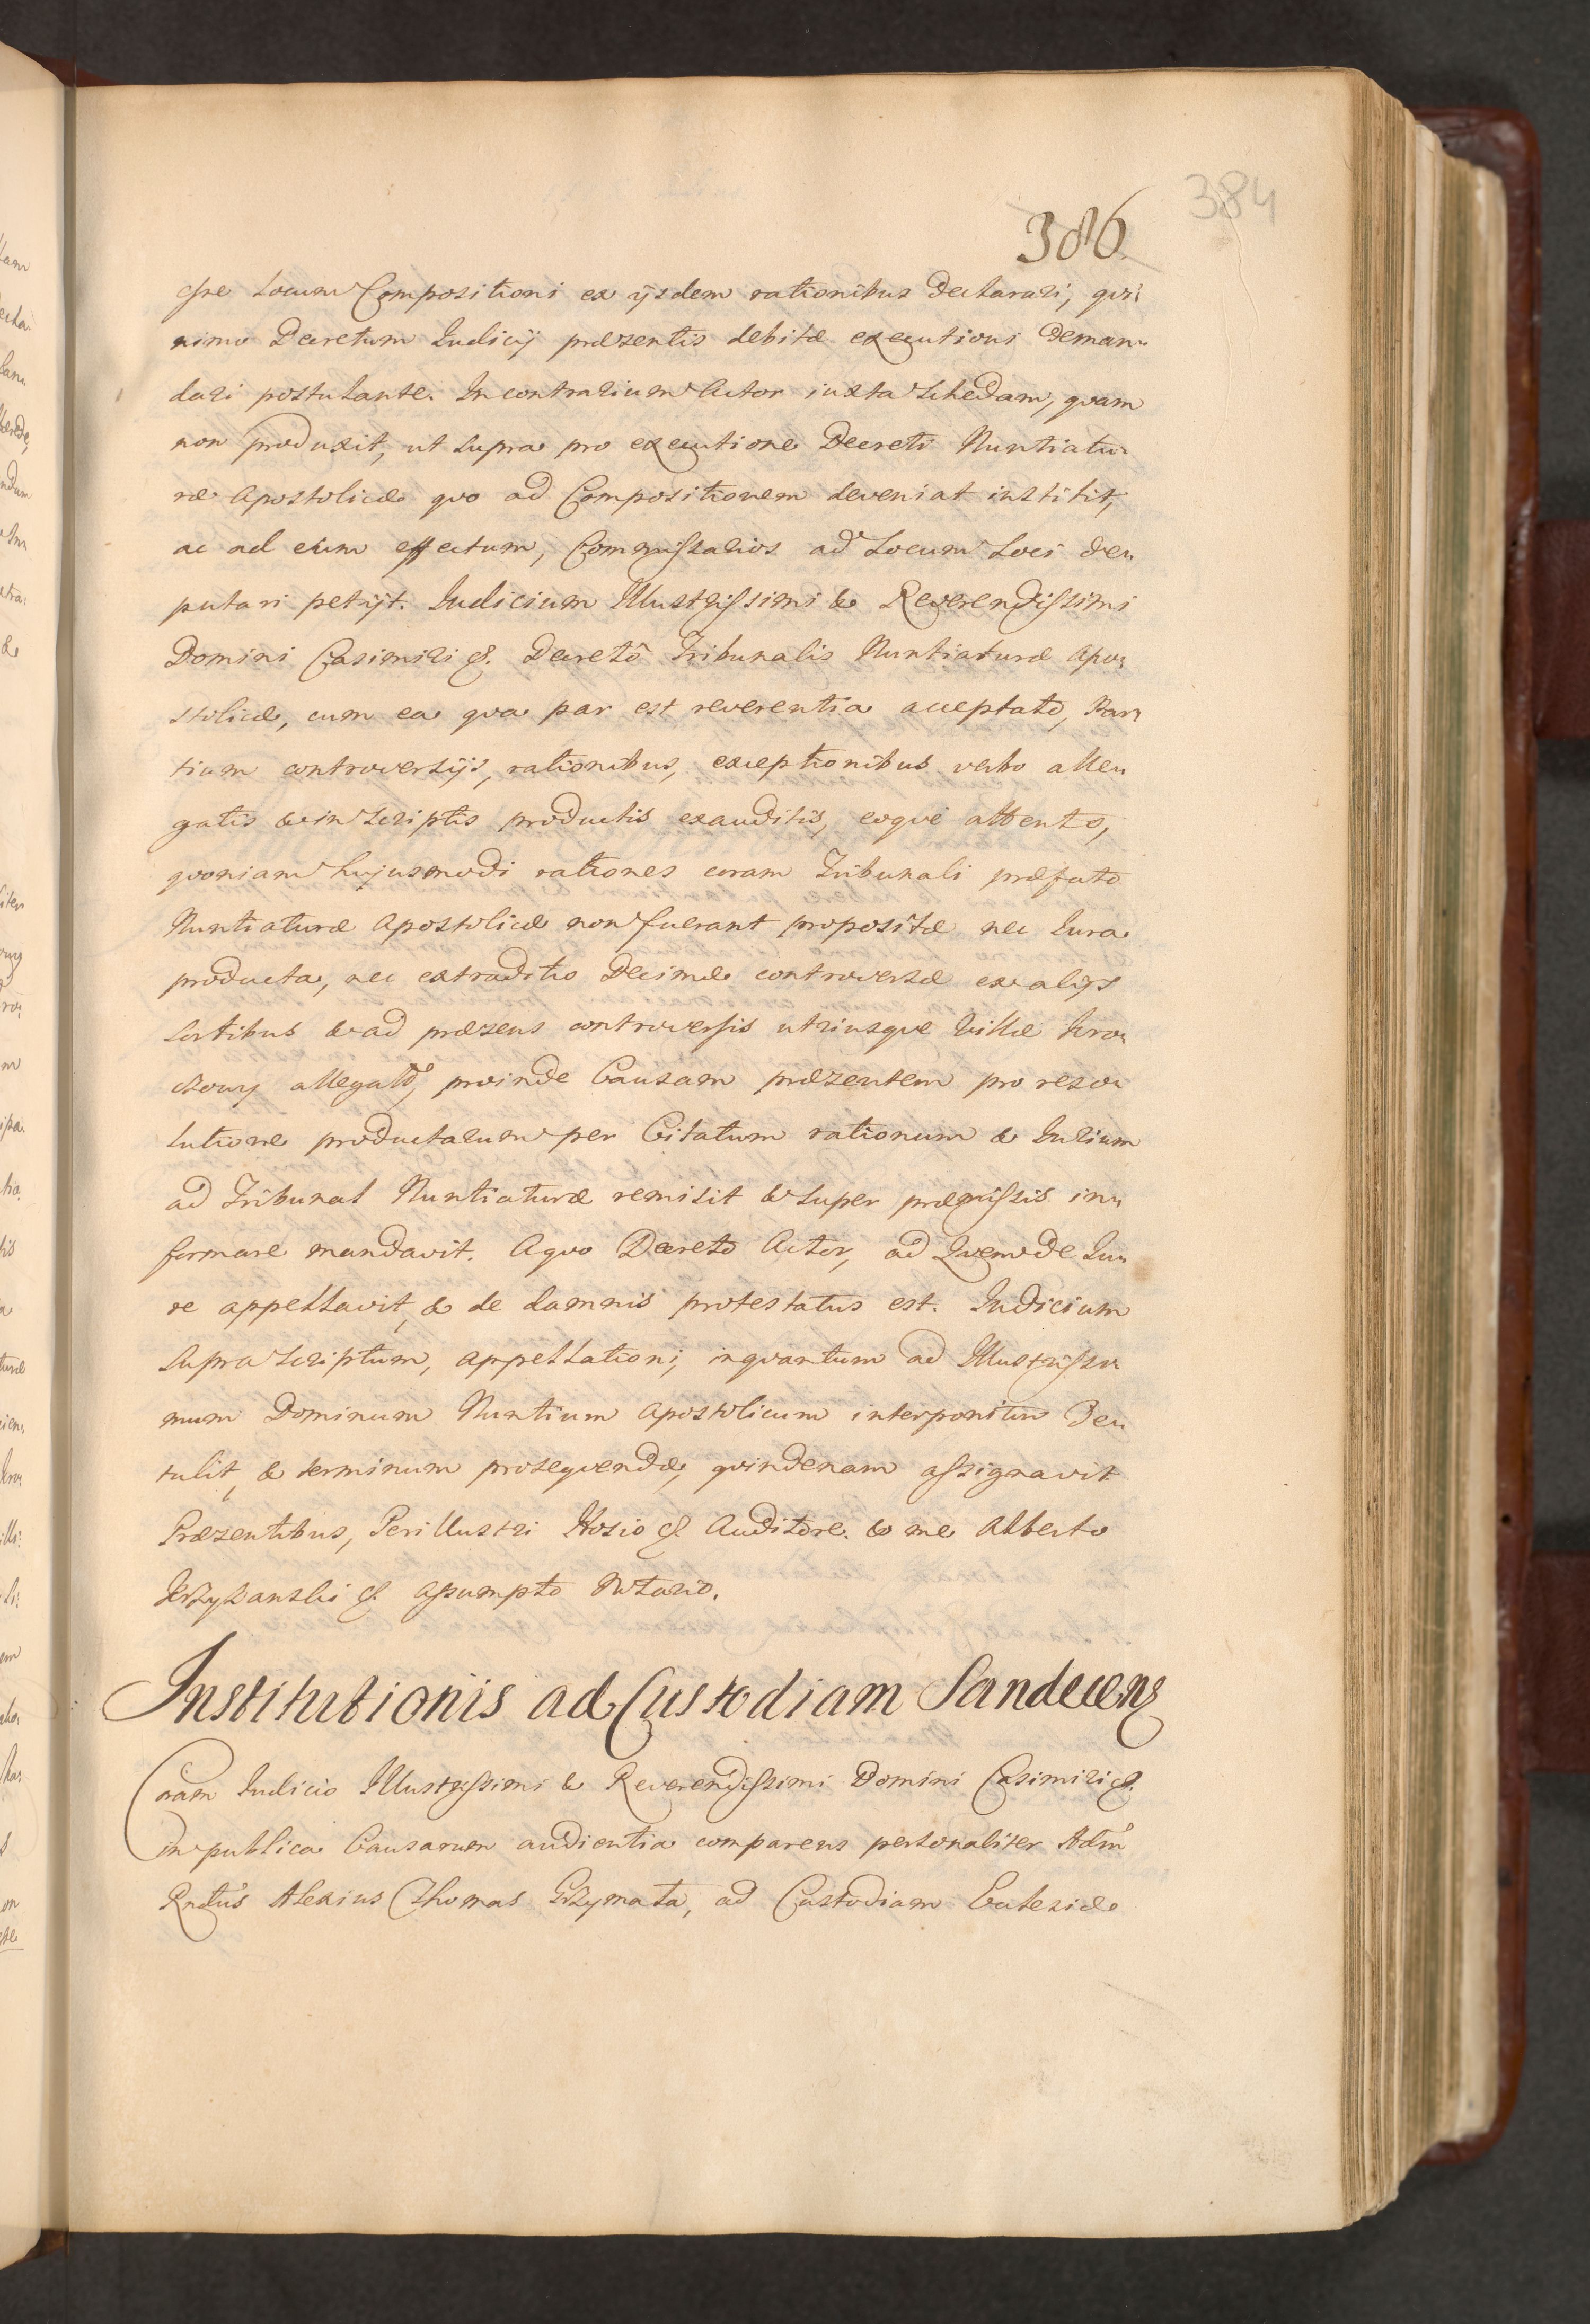 384
386.
esse Locum Compositioni ex ijsdem rationibus declarari, qvi-
nimo Decretum Iudicij præsentis debitæ executioni deman-
dari postulante. In contrarium Actor iuxta Schedam, qvam
non produxit, ut supra pro executione Decreti Nuntiatu-
ræ Apostolicæ qvo ad Compositionem deveniat institit,
ac ad eum effectum, Commissarios ad Locum Loci de-
putari petijt. Iudicium Illustrissimi & Reverendissimi
Domini Casimiri &. Decretô Tribunalis Nuntiaturæ Apo-
stolicæ, cum ea qva par est reverentia acceptato, Par-
tium controversijs, rationibus, exceptionibus verbo alle-
gatis & in scriptis productis exauditis, eoqve attento,
qvoniam hujusmodi rationes coram Tribunali præfato
Nuntiaturæ Apostolicæ non fuerant propositæ nec Iura
producta, nec extraditio Decimæ controversæ ex alijs
sortibus & ad præsens controversis utriusqve Villæ
allegata, proinde Causam præsentem pro reso-
lutione productarum per Citatum rationum & Iurium
ad Tribunal Nuntiaturæ remisit & super præmissis in-
formare mandavit. A qvo Decreto Actor, ad Qvem de Iu-
re appellavit, & de damnis protestatus est. Iudicium
suprascriptum, appellationi, inqvantum ad Illustrissi-
mum Dominum Nuntium Apostolicum interponitur de-
tulit, & terminum proseqvendæ, qvindenam assignavit
Præsentibus, Perillustri Hosio &. Auditore. & me Alberto
&. assumpto Notario.
Institutionis ad Custodiam Sandecens
Coram Iudicio Illustrissimi & Reverendissimi Domini Casimiri &.
in publica Causarum audientia comparens personaliter Adm
Rndus Alexius Thomas Grzymała, ad Custodiam Ecclesiæ